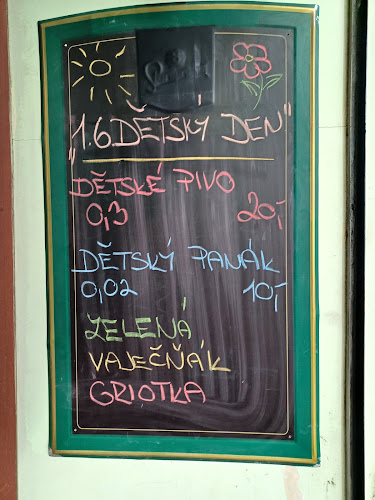 "1.6 DĚTSKÝ DEN"
DĚTSKÉ PIVO
0,3 20,-
DĚTSKÝ PANÁK
0,02 10,-
ZELENÁ
VAJEČŇÁK
GRIOTKA